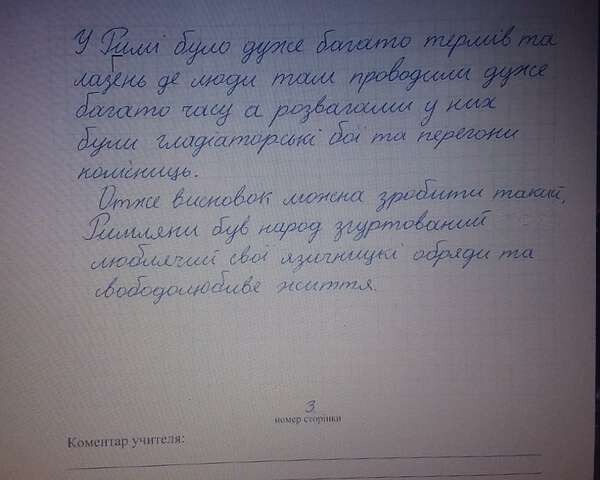 У Римі було дуже багато термів та
лазень де люди там проводили дуже
багато часу а розвагами у них
були гладіаторські бої та перегони
колісниць.
Отже висновок можна зробити такий,
Римляни був народ згуртований
люблячий свої язичницькі обряди та
свободолюбиве життя.
3
номер сторінки
Коментар учителя: